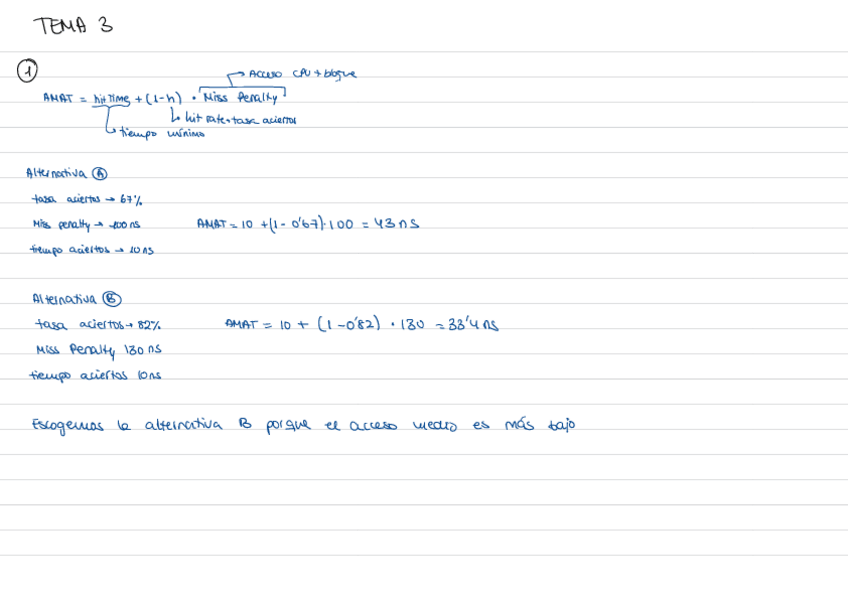 TEMA 3
①
Acceso CPU + bloque
AMAT = hit time + (1-h) · Miss Penalty
hit rate → tasa aciertos
tiempo mínimo
Alternativa Ⓐ
tasa aciertos → 67%
Miss penalty → 100 ns
AMAT = 10 + (1 - 0'67) · 100 = 43 ns
tiempo aciertos → 10 ns
Alternativa Ⓑ
tasa aciertos → 82%
AMAT = 10 + (1 - 0'82) · 130 = 33'4 ns
Miss Penalty 130 ns
tiempo aciertos 10 ns
Escogemos la alternativa B porque el acceso medio es más bajo